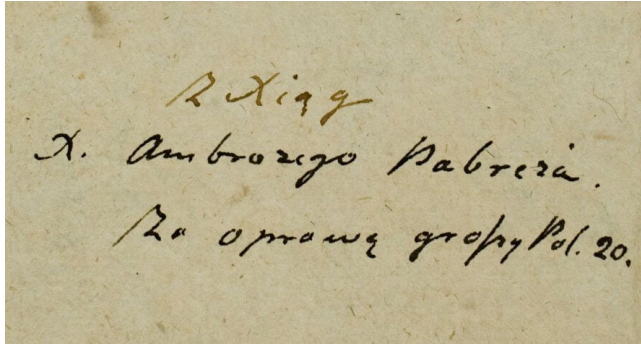 Z Xiąg
X. Ambrozego Pabreża.
Za oprawę groszy Pol. 20.